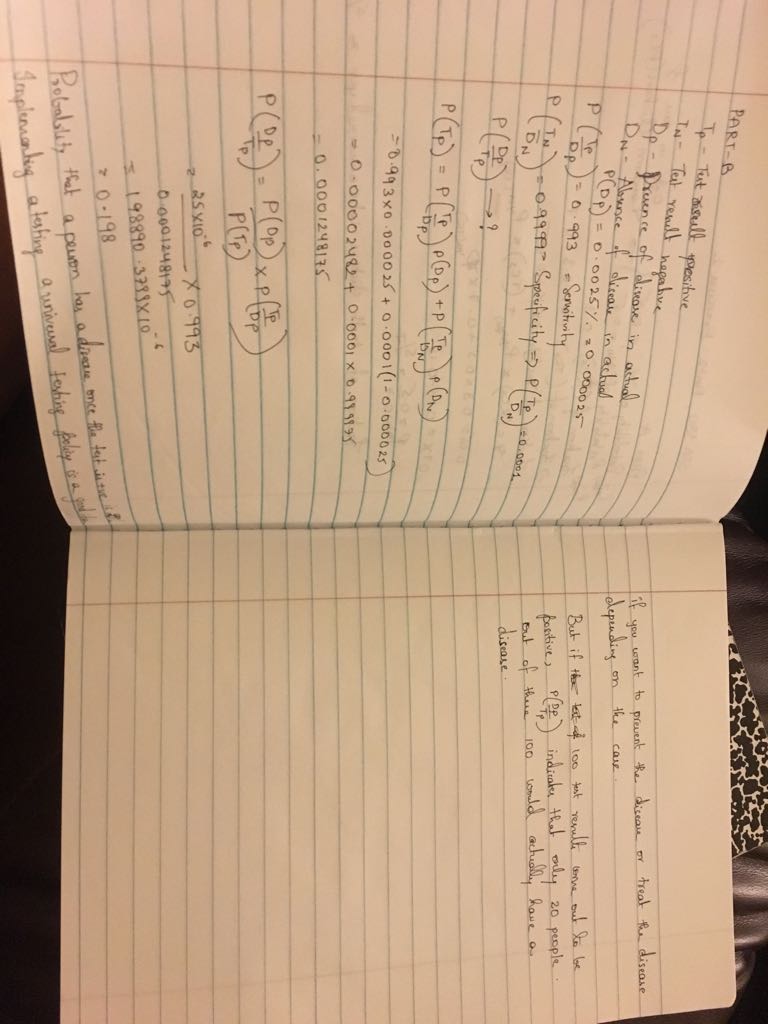 PART-B
TP - Test result positive
TN - Test result negative
DP - Presence of disease in actual
DN - Absence of disease in actual
P(DP) = 0.0025% = 0.000025
P(TP/DP) = 0.993 = Sensitivity
P(TN/DN) = 0.9999 = Specificity ⇒ P(TP/DN) = 0.0001
P(DP/TP) → ?
P(TP) = P(TP/DP) P(DP) + P(TP/DN) P(DN)
= 0.993 x 0.000025 + 0.0001 (1 - 0.000025)
= 0.00002482 + 0.0001 x 0.999975
= 0.0001248175
P(DP/TP) = P(DP)/P(TP) x P(TP/DP)
= 25x10^-6/0.0001248175 x 0.993
= 198890.3799 x 10^-6
= 0.198
Probability that a person has a disease once the test is +ve is
Implementing a testing a universal testing policy is a good
if you want to prevent the disease or treat the disease
depending on the case.
But if 100 test results come out to be
positive, P(DP/TP) indicates that only 20 people
out of these 100 would actually have a
disease.